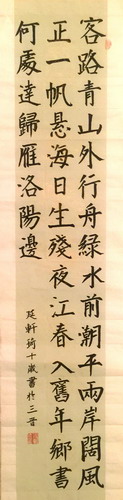 客路青山外行舟綠水前潮平兩岸闊風
正一帆懸海日生殘夜江春入舊年鄉書
何處達歸雁洛陽邊
軒書於三晉